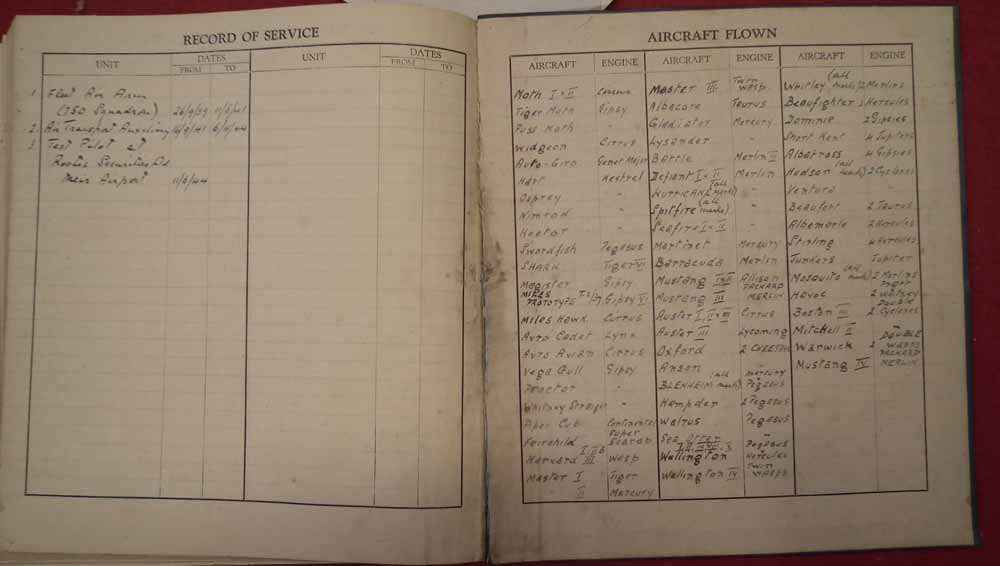 RECORD OF SERVICE
UNIT DATES UNIT DATES
FROM TO FROM TO
1. Fleet Air Arm
(750 Squadron) 26/9/39
2. Air Transport Auxiliary
3. Test Pilot at
Rootes Securities Ltd
Meir Airport
AIRCRAFT FLOWN
AIRCRAFT ENGINE AIRCRAFT ENGINE AIRCRAFT ENGINE
Moth I & II Master III Twin Wasp Whitley (all marks) 2 Merlins
Tiger Moth Gipsy Albacore Taurus Beaufighter Hercules
Puss Moth " Gladiator Mercury Dominie 2 Gipsies
Widgeon Cirrus Lysander " Short Kent 4 Jupiters
Auto-Giro Genet Major Battle Merlin II Albatross 4 Gipsies
Hart Kestrel Defiant I & II Merlin Hudson (all marks) 2 Cyclones
Osprey " HURRICANE (all marks) " Ventura "
Nimrod " Spitfire (all marks) " Beaufort 2 Taurus
Hector Seafire I & II " Albemarle 2 Hercules
Swordfish Pegasus Martinet Mercury Stirling 4 Hercules
SHARK Tiger VI Barracuda Merlin Junkers Jupiter
Magister Gipsy Mustang I & II Allison Mosquito (all marks) 2 Merlins
MILES PROTOTYPE Gipsy VI Mustang III PACKARD MERLIN Havoc 2
Miles Hawk Cirrus Auster Cirrus Boston III 2 Double Cyclones
Avro Cadet Lynx Auster III Lycoming Mitchell II "
Avro Avian Cirrus Oxford 2 Warwick 2 DOUBLE WASPS
Vega Gull Gipsy Anson " Mustang IV PACKARD MERLIN
Proctor " BLENHEIM (all marks) Mercury
Whitney Straight " Hampden 2 Pegasus
Piper Cub Continental Walrus Pegasus
Fairchild Super Scarab Sea Otter
Harvard Wasp Wellington Pegasus Hercules
Master I Tiger Wellington IV Twin Wasps
" II Mercury